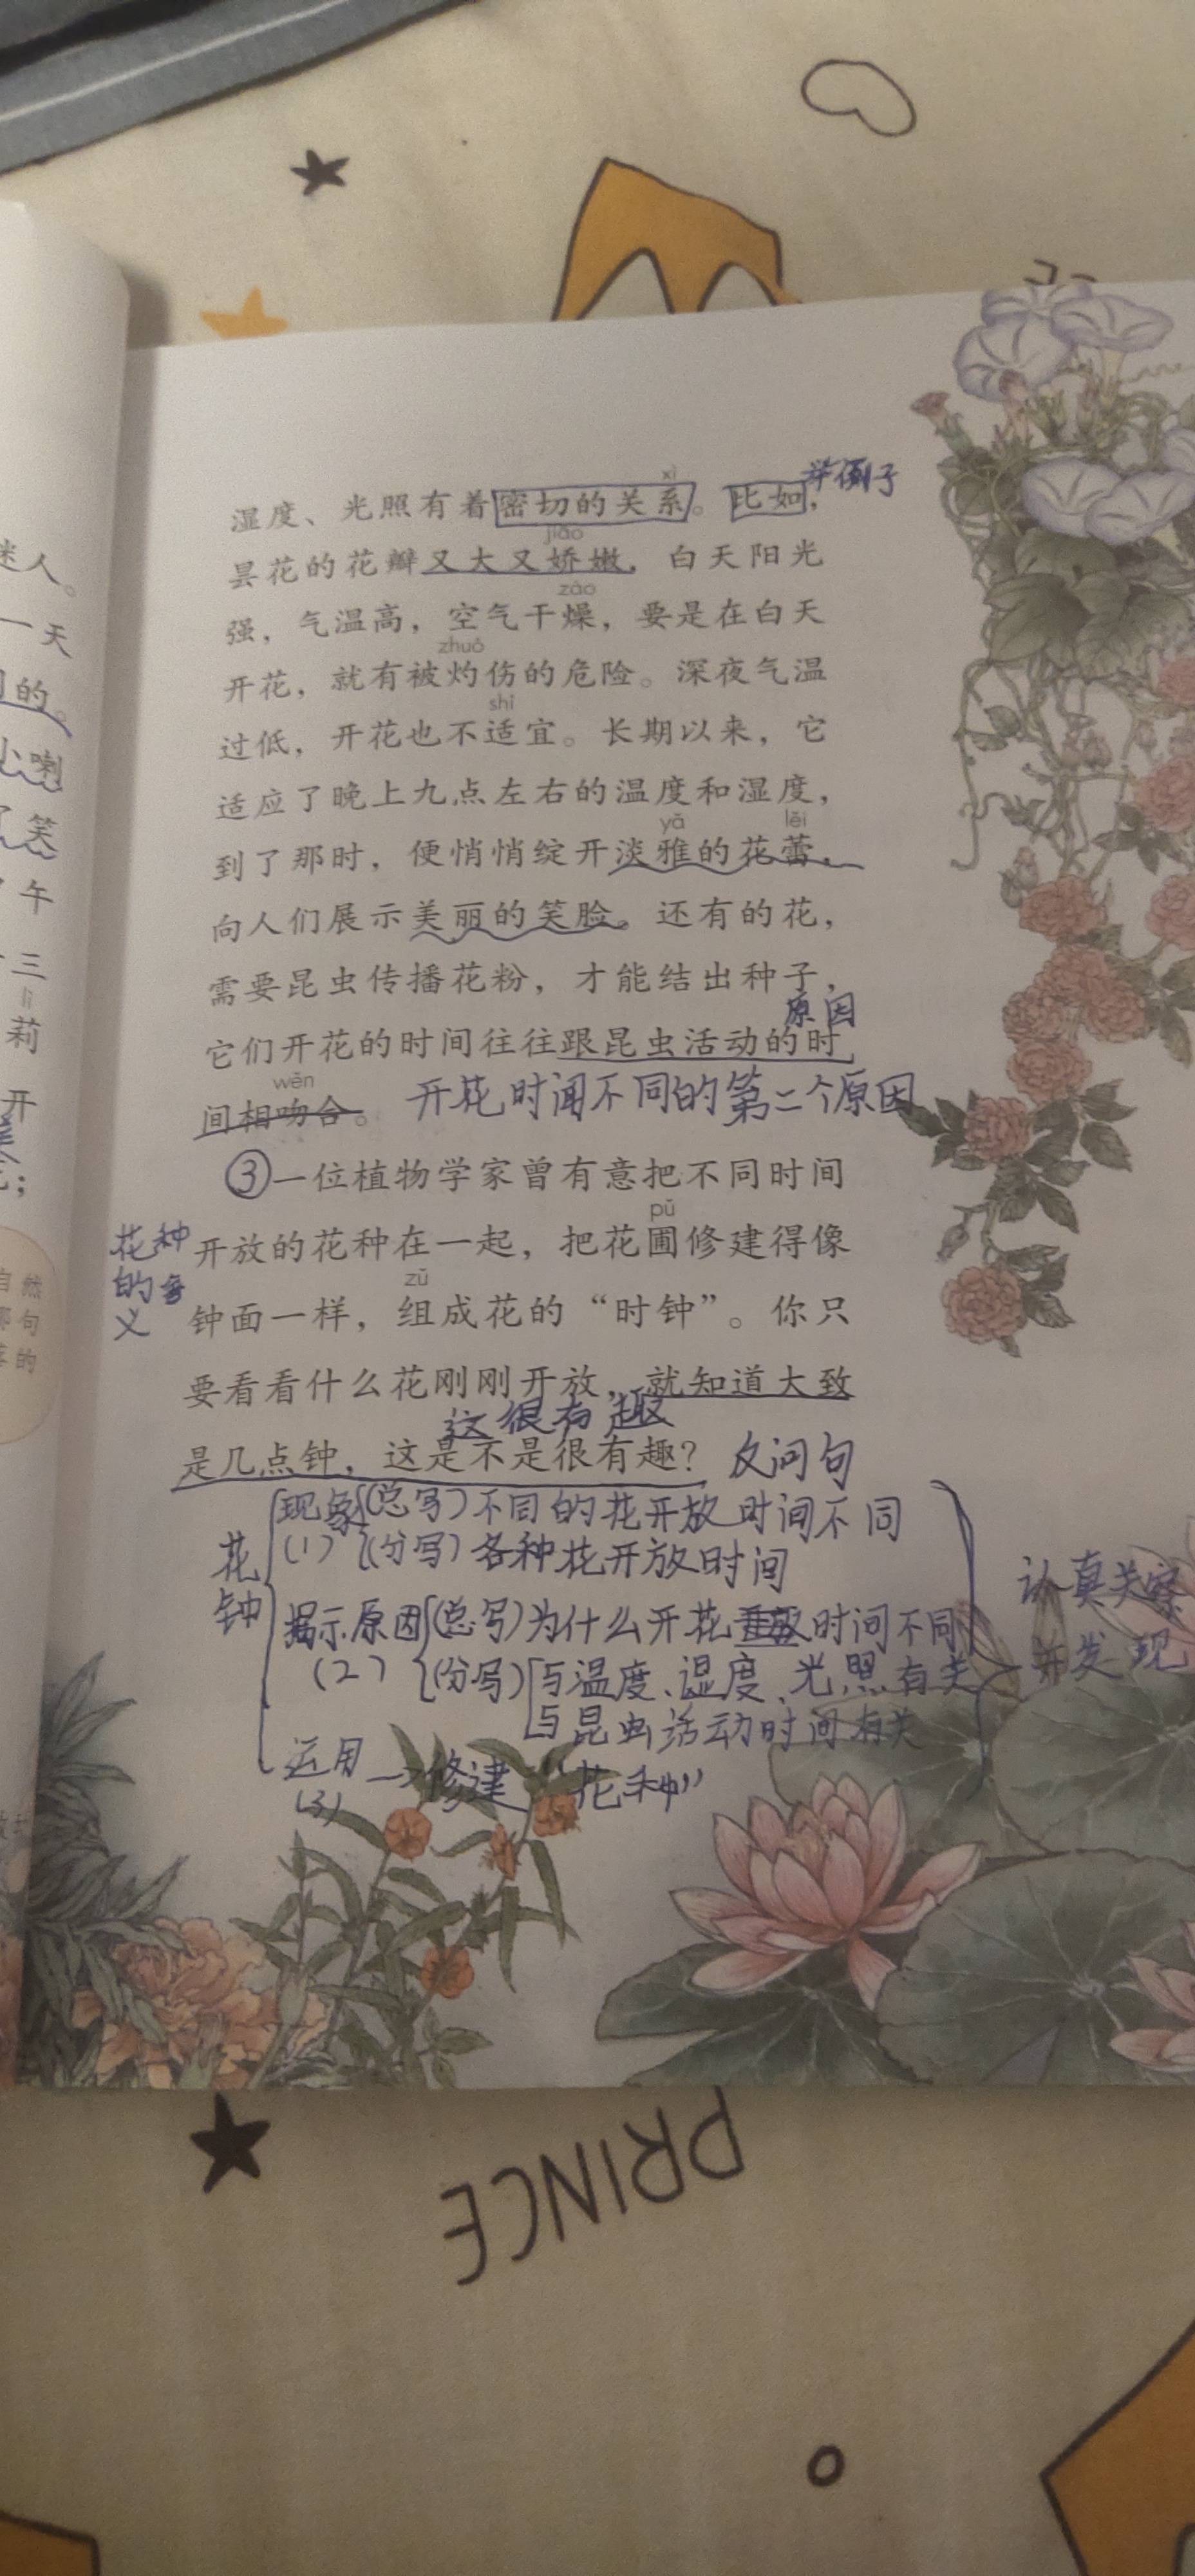 迷人。
一天
的。
小喇
笑
午
三
莉
开
自然
句
的
xì
举例子
湿度、光照有着密切的关系。比如，
jiāo
昙花的花瓣又大又娇嫩，白天阳光
zào
强，气温高，空气干燥，要是在白天
zhuó
开花，就有被灼伤的危险。深夜气温
shì
过低，开花也不适宜。长期以来，它
适应了晚上九点左右的温度和湿度，
yǎ lěi
到了那时，便悄悄绽开淡雅的花蕾，
向人们展示美丽的笑脸。还有的花，
需要昆虫传播花粉，才能结出种子，
原因
它们开花的时间往往跟昆虫活动的时
wěn
间相吻合。 开花时间不同的第二个原因
③一位植物学家曾有意把不同时间
pǔ
花种
开放的花种在一起，把花圃修建得像
的
zǔ
义
钟面一样，组成花的“时钟”。你只
要看看什么花刚刚开放，就知道大致
这很有趣
是几点钟，这是不是很有趣？ 反问句
花钟
现象(总写)不同的花开放时间不同
(1) (分写)各种花开放时间
揭示原因(总写)为什么开花时间不同
(2) (分写)与温度、湿度、光照有关
与昆虫活动时间有关
运用→修建“花种”
(3)
认真关察
并发现
PRINCE